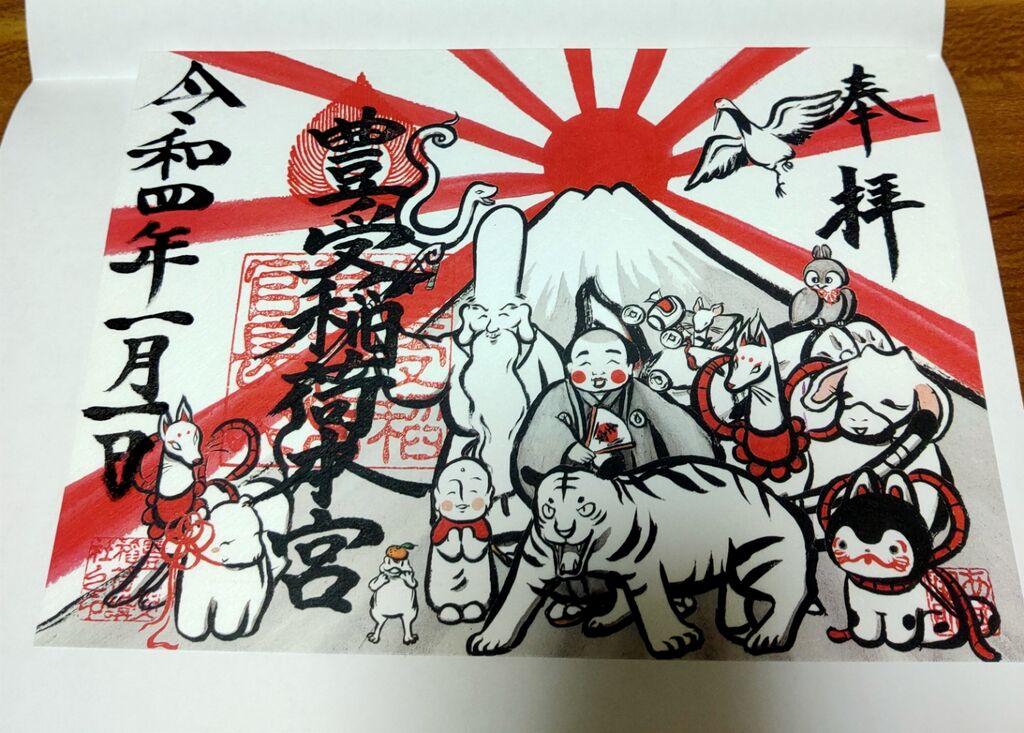 奉拝
豊受稲荷本宮
令和四年一月一日